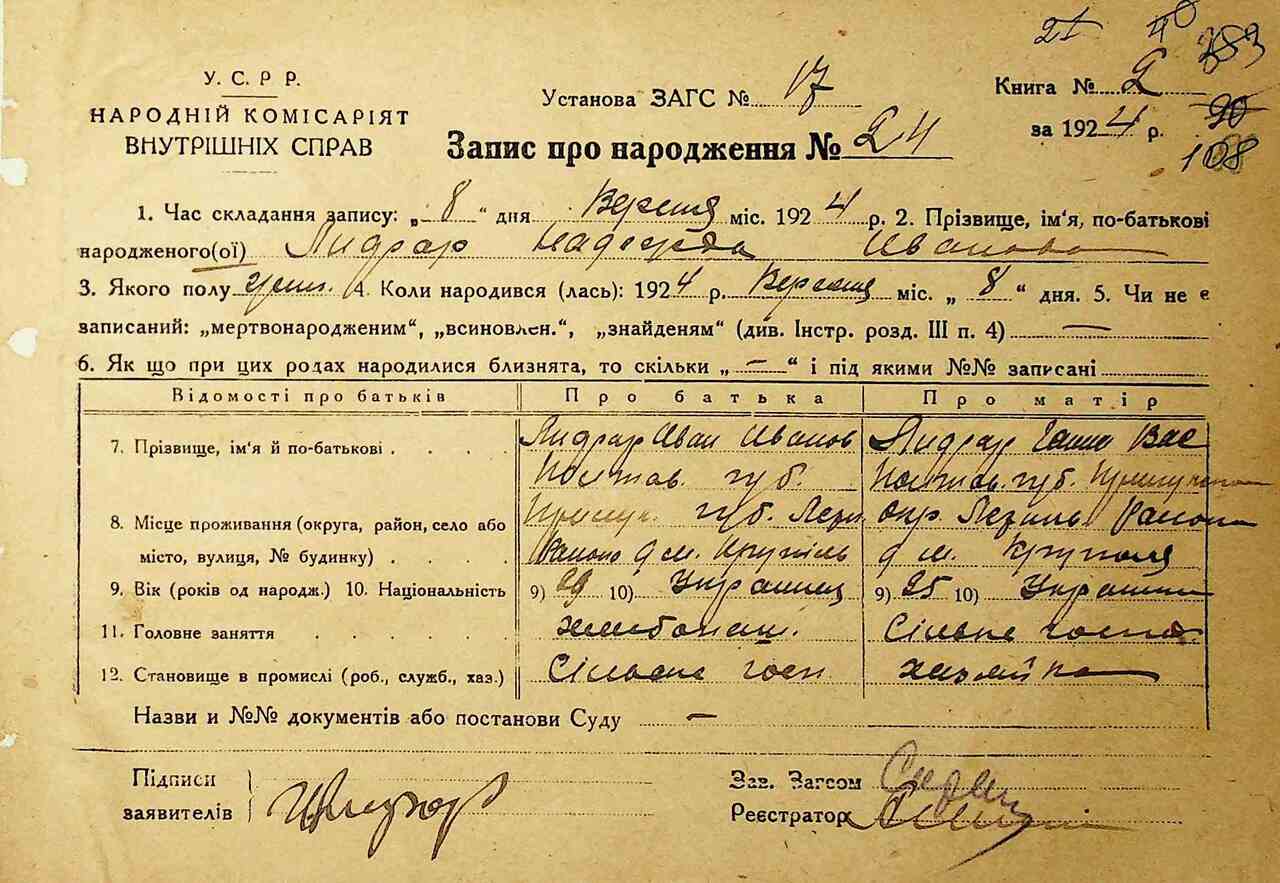 21 40 353
У. С. Р. Р.
НАРОДНІЙ КОМІСАРІЯТ
ВНУТРІШНІХ СПРАВ
Установа ЗАГС № 17
Книга № 2
за 1924 р.
90
108
Запис про народження № 24
1. Час складання запису: „ 8 “ дня Вересня міс. 1924 р. 2. Прізвище, ім'я, по-батькові
народженого(ої) Надежда Иванова
3. Якого полу жен. 4. Коли народився (лась): 1924 р. Вересня міс. „ 8 “ дня. 5. Чи не є
записаний: „мертвонародженим“, „всиновлен.“, „знайденям“ (див. Інстр. розд. III п. 4) —
6. Як що при цих родах народилися близнята, то скільки „ — “ і під якими №№ записані
Відомості про батьків Про батька Про матір
7. Прізвище, ім'я й по-батькові . . . . Иван Иванов Ганна Вас
Полтав. губ. Полтав. губ.
8. Місце проживання (округа, район, село або губ. окр. Района
місто, вулиця, № будинку) . . . . Района
9. Вік (років од народж.) 10. Національність 9) 29 10) Украинец 9) 25 10)
11. Головне заняття . . . . . хлебопаш. Сільске госп
12. Становище в промислі (роб., служб., хаз.) Сільске госп хазяйка
Назви и №№ документів або постанови Суду —
Підписи
заявителів
Зав. Загсом
Реєстратор